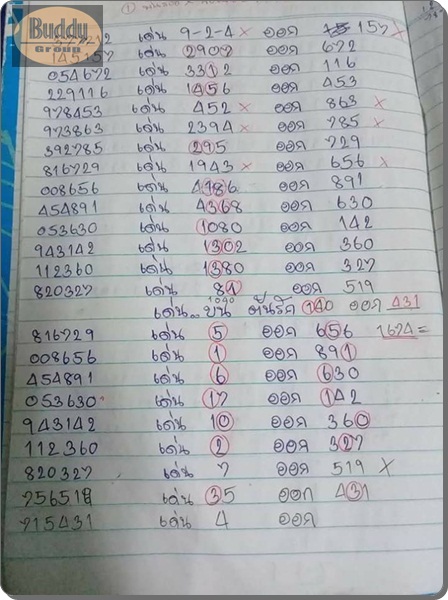 Buddy
Group
เด่น 9-2-4 x ออก 157 x
145157 เด่น 2907 ออก 672
054672 เด่น 3312 ออก 116
229116 เด่น 1456 ออก 453
978453 เด่น 452 x ออก 863 x
973863 เด่น 2394 x ออก 785 x
392785 เด่น 295 ออก 729
816729 เด่น 1943 x ออก 656 x
008656 เด่น 4786 ออก 891
454891 เด่น 4368 ออก 630
053630 เด่น 1080 ออก 142
943142 เด่น 1302 ออก 360
112360 เด่น 1380 ออก 327
820327 เด่น 81 ออก 519
1040
เด่น บน 140 ออก 431
816729 เด่น 5 ออก 656 1674=
008656 เด่น 1 ออก 891
454891 เด่น 6 ออก 630
053630 เด่น 17 ออก 142
943142 เด่น 10 ออก 360
112360 เด่น 2 ออก 327
820327 เด่น 7 ออก 519 x
756519 เด่น 35 ออก 431
715431 เด่น 4 ออก